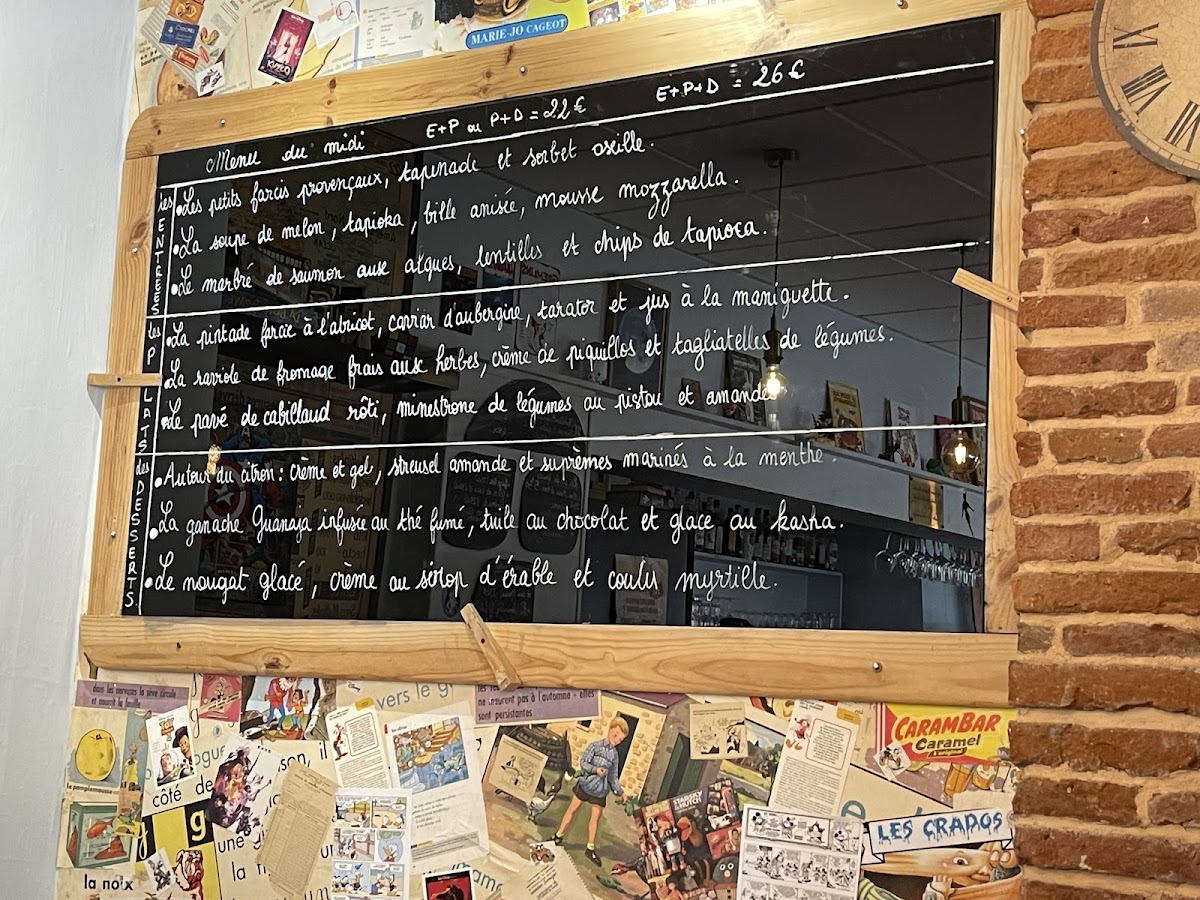 MARIE-JO CAGEOT
Menu du midi E+P ou P+D = 22€ E+P+D = 26€
les ENTRÉES
• Les petits farcis provençaux, tapenade et sorbet oseille.
• La soupe de melon, tapioka, bille anisée, mousse mozzarella.
• Le marbré de saumon aux algues, lentilles et chips de tapioca.
les PLATS
• La pintade farcie à l'abricot, caviar d'aubergine, tarator et jus à la maniguette.
• La raviole de fromage frais aux herbes, crème de piquillos et tagliatelles de légumes.
• Le pavé de cabillaud rôti, minestrone de légumes au pistou et amandes
des DESSERTS
• Autour du citron : crème et gel, streusel amande et suprèmes marinés à la menthe.
• La ganache Guanaja infusée au thé fumé, tuile au chocolat et glace au kasha.
• Le nougat glacé, crème au sirop d'érable et coulis myrtille.
dans les nervures la sève circule
et nourrit la feuille
vers le
ne meurent pas à l'automne - elles
sont persistantes
CARAMBAR
Caramel
côté de
le pamplemousse
g
une
la
la noix
STARSKY
& HUTCH
LES CRADOS